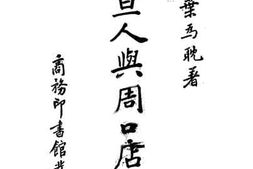 葉為耽著
旦人與周口店
商務印書館